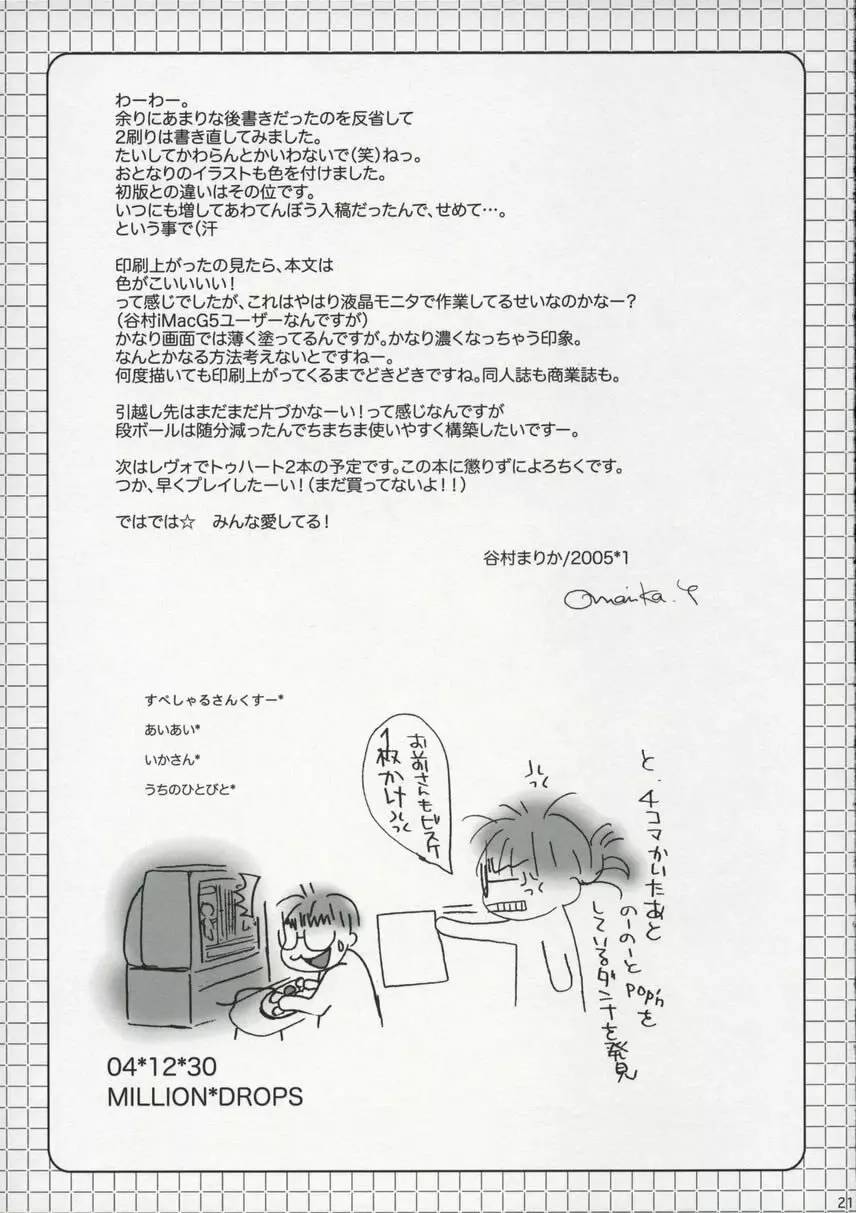 わーわー。
余りにあまりな後書きだったのを反省して
2刷りは書き直してみました。
たいしてかわらんとかいわないで(笑)ねっ。
おとなりのイラストも色を付けました。
初版との違いはその位です。
いつにも増してあわてんぼう入稿だったんで、せめて…。
という事で(汗
印刷上がったの見たら、本文は
色がこいいいい!
って感じでしたが、これはやはり液晶モニタで作業してるせいなのかなー?
(谷村iMacG5ユーザーなんですが)
かなり画面では薄く塗ってるんですが。かなり濃くなっちゃう印象。
なんとかなる方法考えないとですねー。
何度描いても印刷上がってくるまでどきどきですね。同人誌も商業誌も。
引越し先はまだまだ片づかなーい!って感じなんですが
段ボールは随分減ったんでちまちま使いやすく構築したいですー。
次はレヴォでトゥハート2本の予定です。この本に懲りずによろちくです。
つか、早くプレイしたーい!(まだ買ってないよ!!)
ではでは☆ みんな愛してる!
谷村まりか/2005*1
すぺしゃるさんくすー*
あいあい*
いかさん*
うちのひとびと*
と、4コマかいたあと
のーのーとpop'nを
しているダンナを発見
お前さんもビスケ
1枚かけ
04*12*30
MILLION*DROPS
21